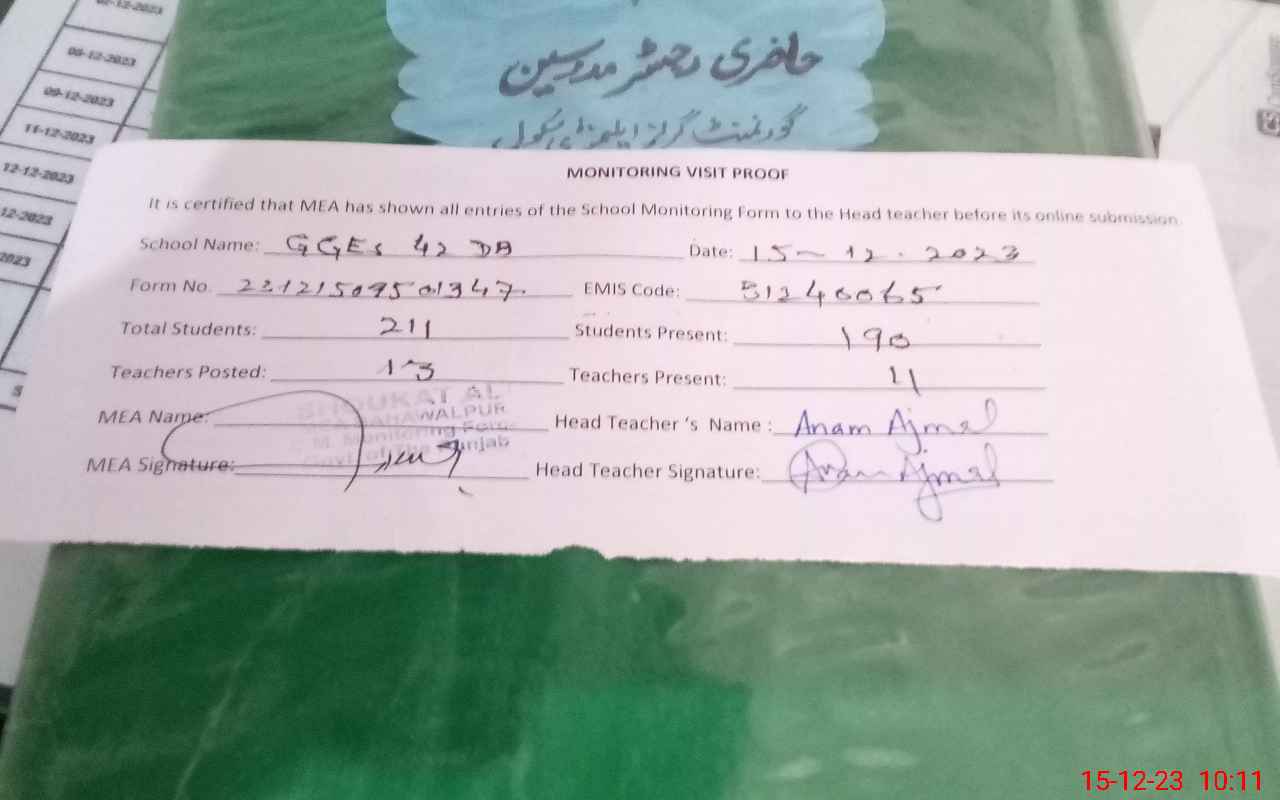 02-12-2023
08-12-2023
09-12-2023
11-12-2023
12-12-2023
12-2023
2023
حاضری رجسٹر مدرسین
گورنمنٹ گرلز ایلیمنٹری سکول
MONITORING VISIT PROOF
It is certified that MEA has shown all entries of the School Monitoring Form to the Head teacher before its online submission
School Name: GGES 42 DB Date: 15-12.2023
Form No. 23121509501347 EMIS Code: 31240065
Total Students: 211 Students Present: 190
Teachers Posted: 13 Teachers Present: 11
SHOUKAT AL
BAHAWALPUR
Monitoring
Govt. of The Punjab
MEA Name: Head Teacher 's Name : Anam Ajmal
MEA Signature: Head Teacher Signature: Anam Ajmal
15-12-23 10:11